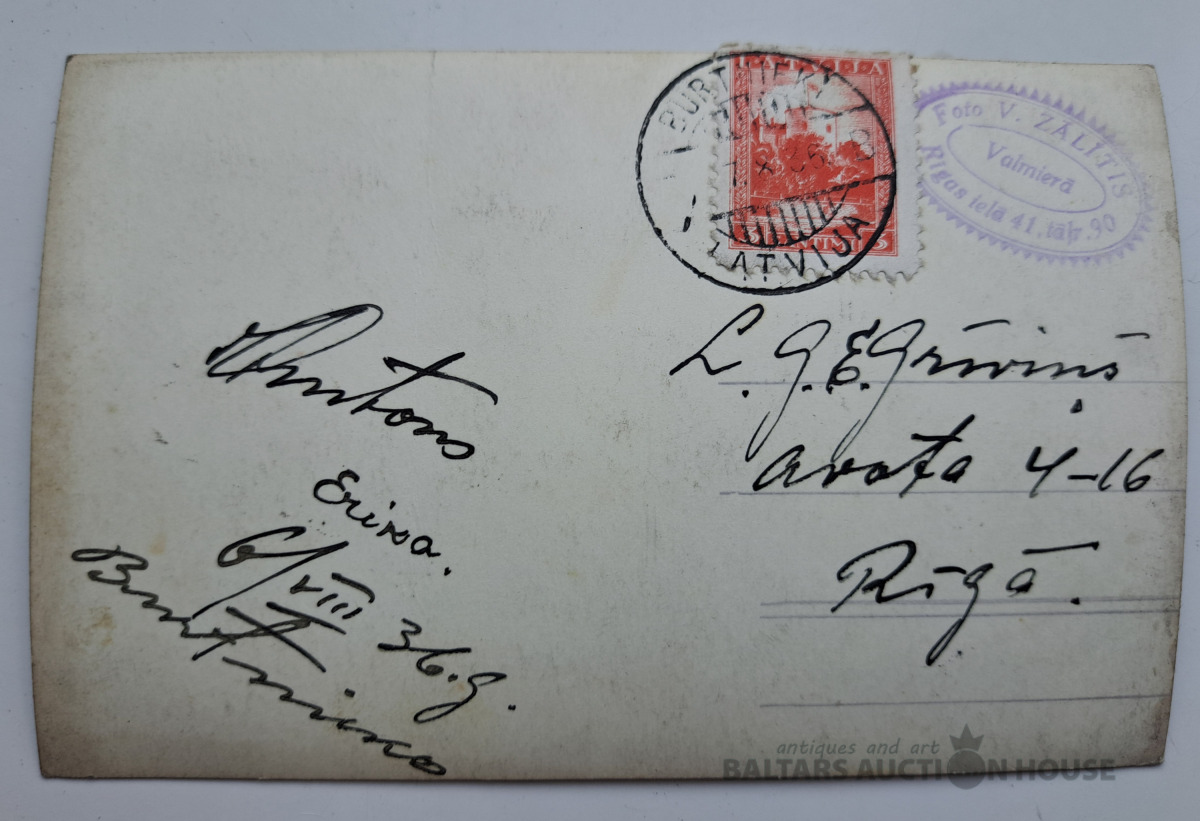 LATVIJA
BURTNIEKI
B
LATVIJA
Foto V. ZĀLĪTIS
Valmierā
Rīgas ielā 41. tālr. 90
L. G. E. Grīviņš
Avota 4-16
Rīgā.
Antons
Erika.
6/VIII 36.g.
Burtniekos
antiques and art
BALTARS AUCTION HOUSE